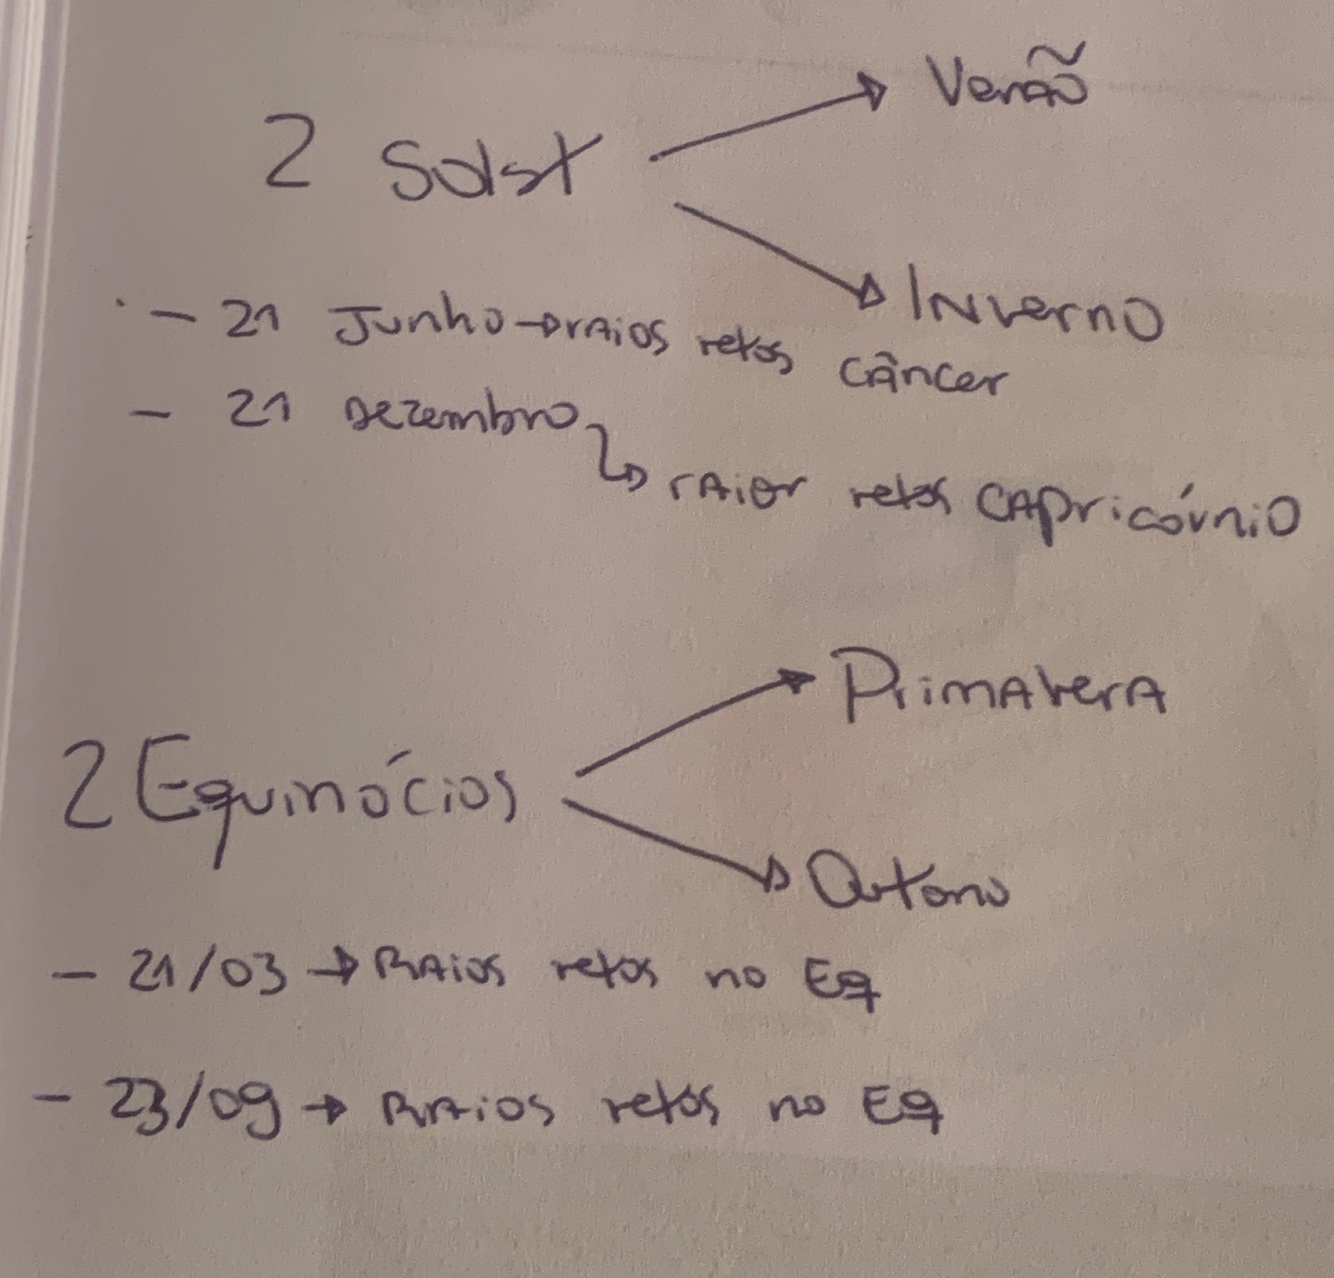 2 Solst → Verão
→ Inverno
- 21 Junho → raios retos câncer
- 21 Dezembro
↳ raios retos Capricórnio
2 Equinócios → Primavera
→ Outono
- 21/03 → Raios retos no Eq
- 23/09 → Raios retos no Eq